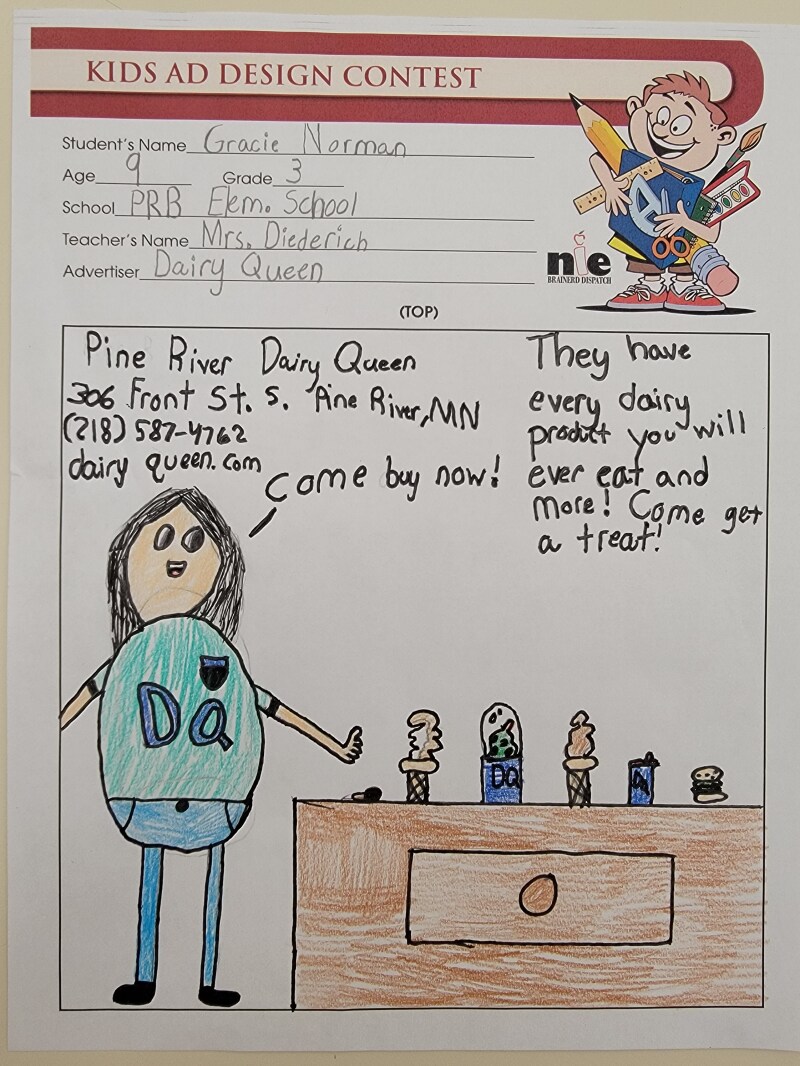 KIDS AD DESIGN CONTEST
Student's Name Gracie Norman
Age 9 Grade 3
School PRB Elem. School
Teacher's Name Mrs. Diederich
Advertiser Dairy Queen
nie
BRAINERD DISPATCH
(TOP)
Pine River Dairy Queen
306 Front St. S. Pine River, MN
(218) 587-4762
dairy queen.com
Come buy now!
They have
every dairy
product you will
ever eat and
more! Come get
a treat!
DQ
DQ